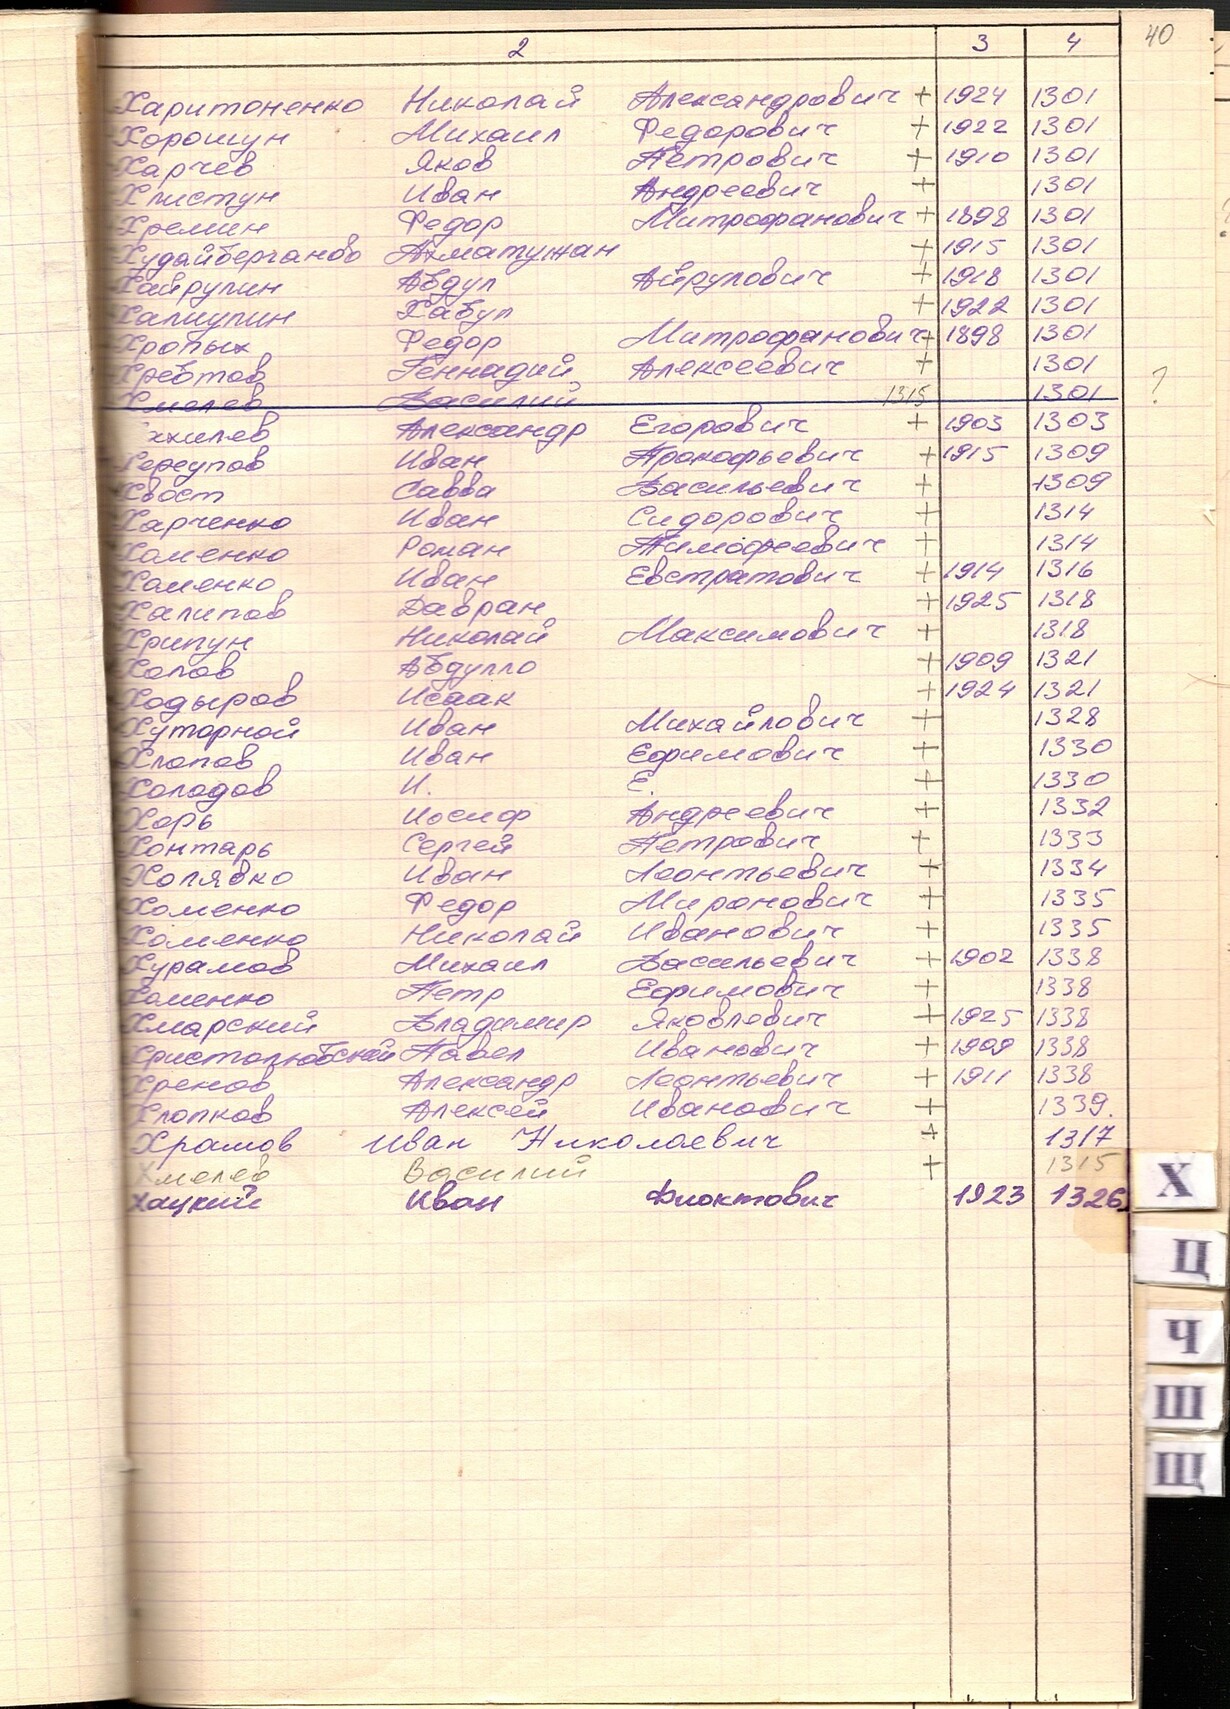 2 3 4 40
Харитоненко Николай Александрович + 1924 1301
Хорошун Михаил Федорович + 1922 1301
Харчев Яков Петрович + 1910 1301
Хлистун Иван Андреевич + 1301
Хремин Федор Митрофанович + 1898 1301
Худайберганов Ахматужан + 1915 1301
Хайрулин Абдул Айрулович + 1918 1301
Халиулин Хабул + 1922 1301
Хропых Федор Митрофанович + 1898 1301
Хребтов Геннадий Алексеевич + 1301
Хмелев Василий 1315 1301 ?
Александр Егорович + 1903 1303
Иван Прокофьевич + 1915 1309
Хвост Савва Васильевич + 1309
Харченко Иван Сидорович + 1314
Хоменко Роман Тимофеевич + 1314
Хоменко Иван Евстратович + 1914 1316
Халипов Давран + 1925 1318
Хрипун Николай Максимович + 1318
Холов Абдулло + 1909 1321
Ходыров Исаак + 1924 1321
Хуторной Иван Михайлович + 1328
Хлопов Иван Ефимович + 1330
Холодов И. Е. + 1330
Хорь Иосиф Андреевич + 1332
Хонтарь Сергей Петрович + 1333
Холявко Иван Леонтьевич + 1334
Хоменко Федор Миронович + 1335
Хоменко Николай Иванович + 1335
Хурамов Михаил Васильевич + 1902 1338
Хоменко Петр Ефимович + 1338
Хмарский Владимир Яковлевич + 1925 1338
Христолюбский Павел Иванович + 1909 1338
Хренов Александр Леонтьевич + 1911 1338
Хлопков Алексей Иванович + 1339.
Храмов Иван Николаевич + 1317
Хмелев Василий + 1315
Хацкий Иван Фиоктович 1923 1326
Х
Ц
Ч
Ш
Щ